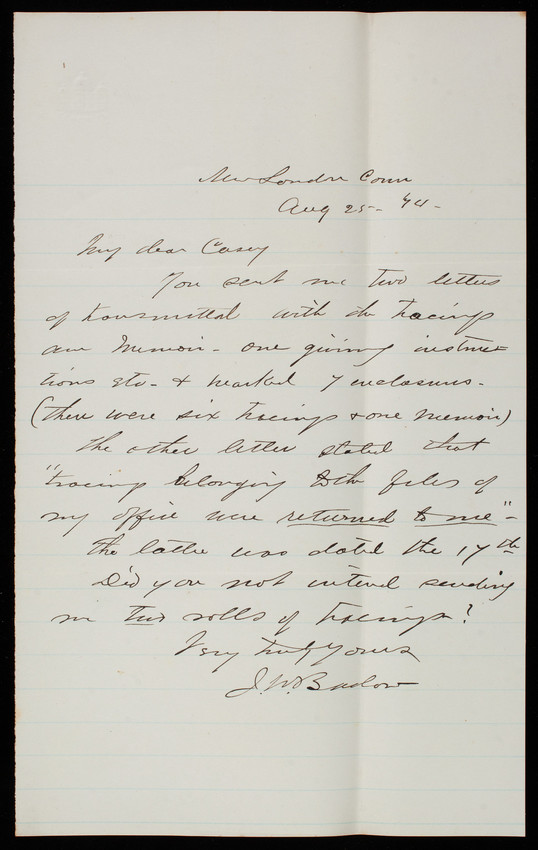 New London Conn
Aug 25 -
My dear Casey
You sent me two letters
of transmittal with the tracings
and Memoir - one giving instruc=
tions etc - & marked 7 enclosures -
(there were six tracings & one Memoir)
The other letter stated that
"tracings belonging to the files of
my office were returned to me" -
the latter was dated the 17th
Did you not intend sending
me two rolls of tracings?
Very truly Yours
J. W. Barlow